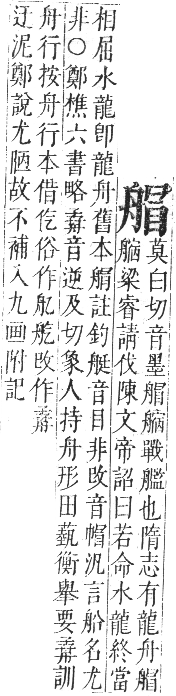 艒
莫白切音墨艒戰艦也隋志有龍舟艒
梁睿請伐陳文帝詔曰若命水龍終當
相屈水龍卽龍舟舊本艒註釣艇音目非改音帽汎言船名尤
非○鄭樵六書略音逆及切象人持舟形田藝衡舉要訓
舟行按舟行本借仡俗作改作
迂泥鄭說尤陋故不補入九画附記